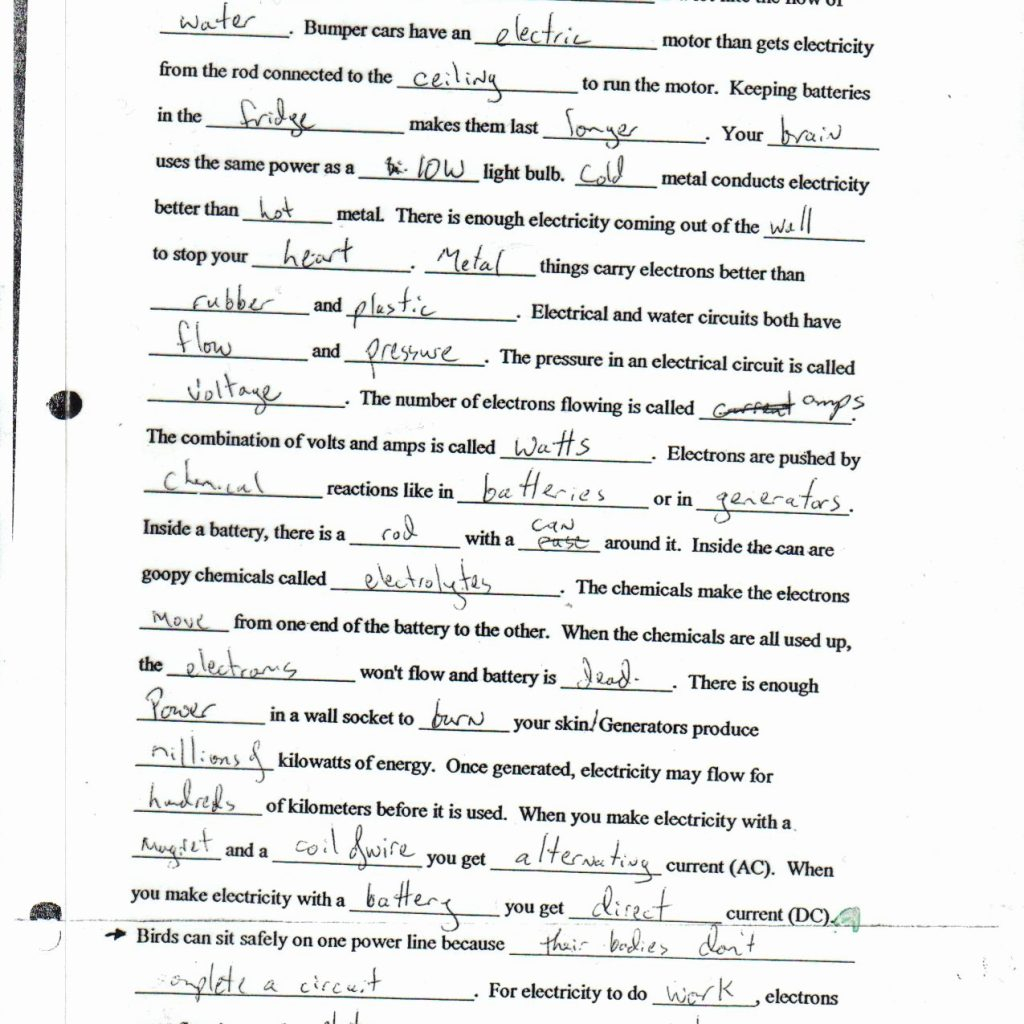 water. Bumper cars have an electric motor than gets electricity
from the rod connected to the ceiling to run the motor. Keeping batteries
in the fridge makes them last longer. Your brain
uses the same power as a 10W light bulb. Cold metal conducts electricity
better than hot metal. There is enough electricity coming out of the wall
to stop your heart. Metal things carry electrons better than
rubber and plastic. Electrical and water circuits both have
flow and pressure. The pressure in an electrical circuit is called
voltage. The number of electrons flowing is called current amps.
The combination of volts and amps is called Watts. Electrons are pushed by
chemical reactions like in batteries or in generators.
Inside a battery, there is a rod with a can around it. Inside the can are
goopy chemicals called electrolytes. The chemicals make the electrons
move from one end of the battery to the other. When the chemicals are all used up,
the electrons won't flow and battery is dead. There is enough
Power in a wall socket to burn your skin/Generators produce
millions of kilowatts of energy. Once generated, electricity may flow for
hundreds of kilometers before it is used. When you make electricity with a
Magnet and a coil of wire you get alternating current (AC). When
you make electricity with a battery you get direct current (DC).
Birds can sit safely on one power line because their bodies don't
complete a circuit. For electricity to do work, electrons